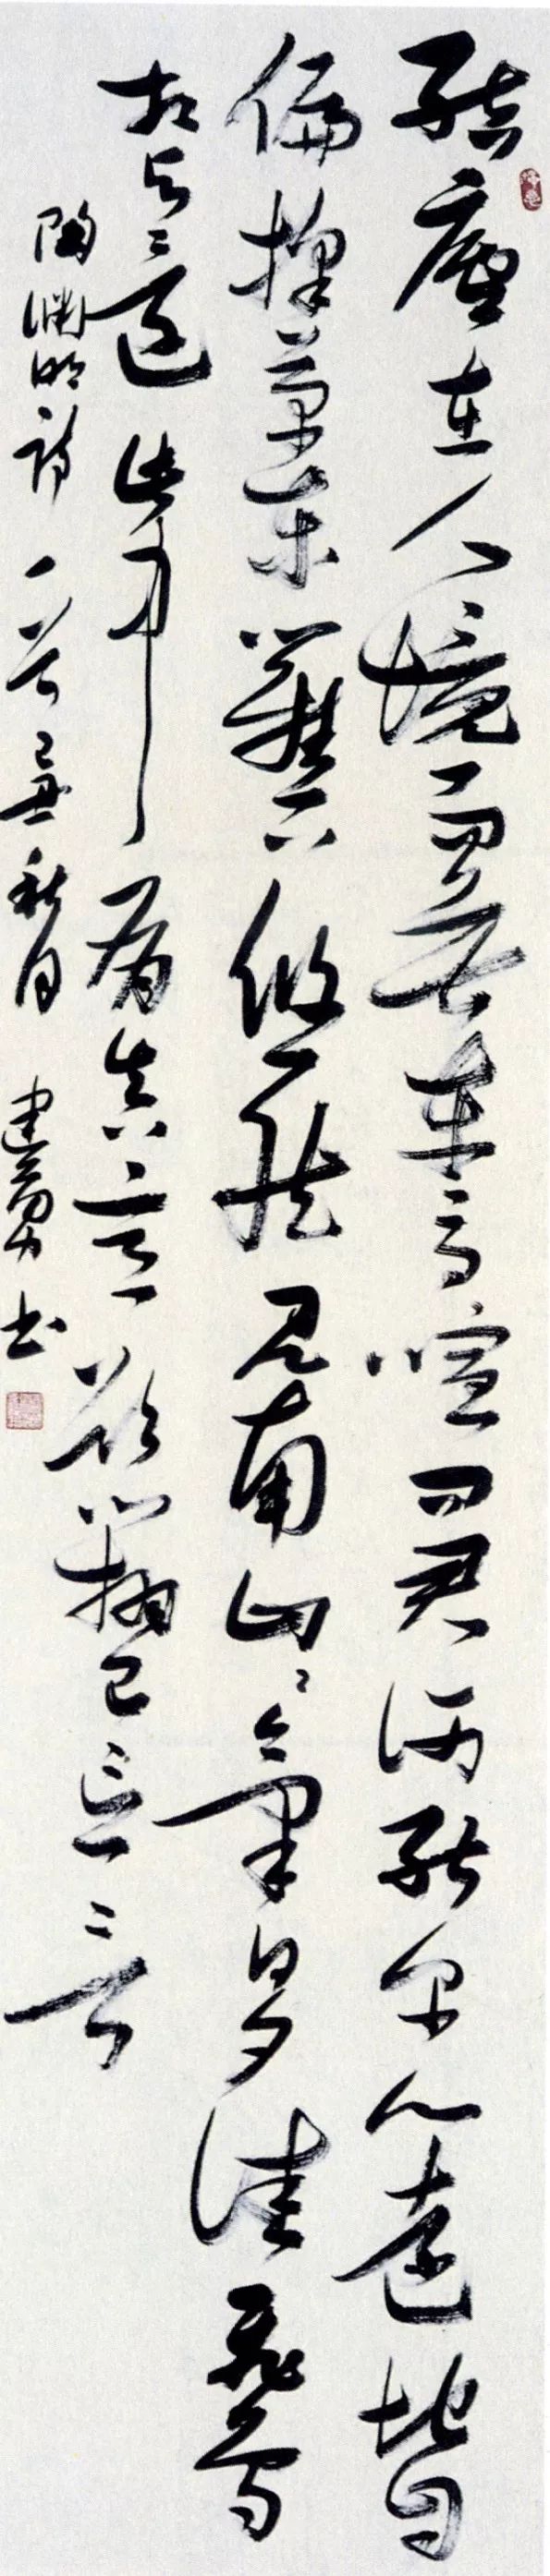 結廬在人境而無車馬喧問君何能尔心遠地自
偏採菊東籬下悠然見南山〻氣日夕佳飛鳥
相与還此中有真意欲辯已忘言
陶淵明詩一首秋月建勇书